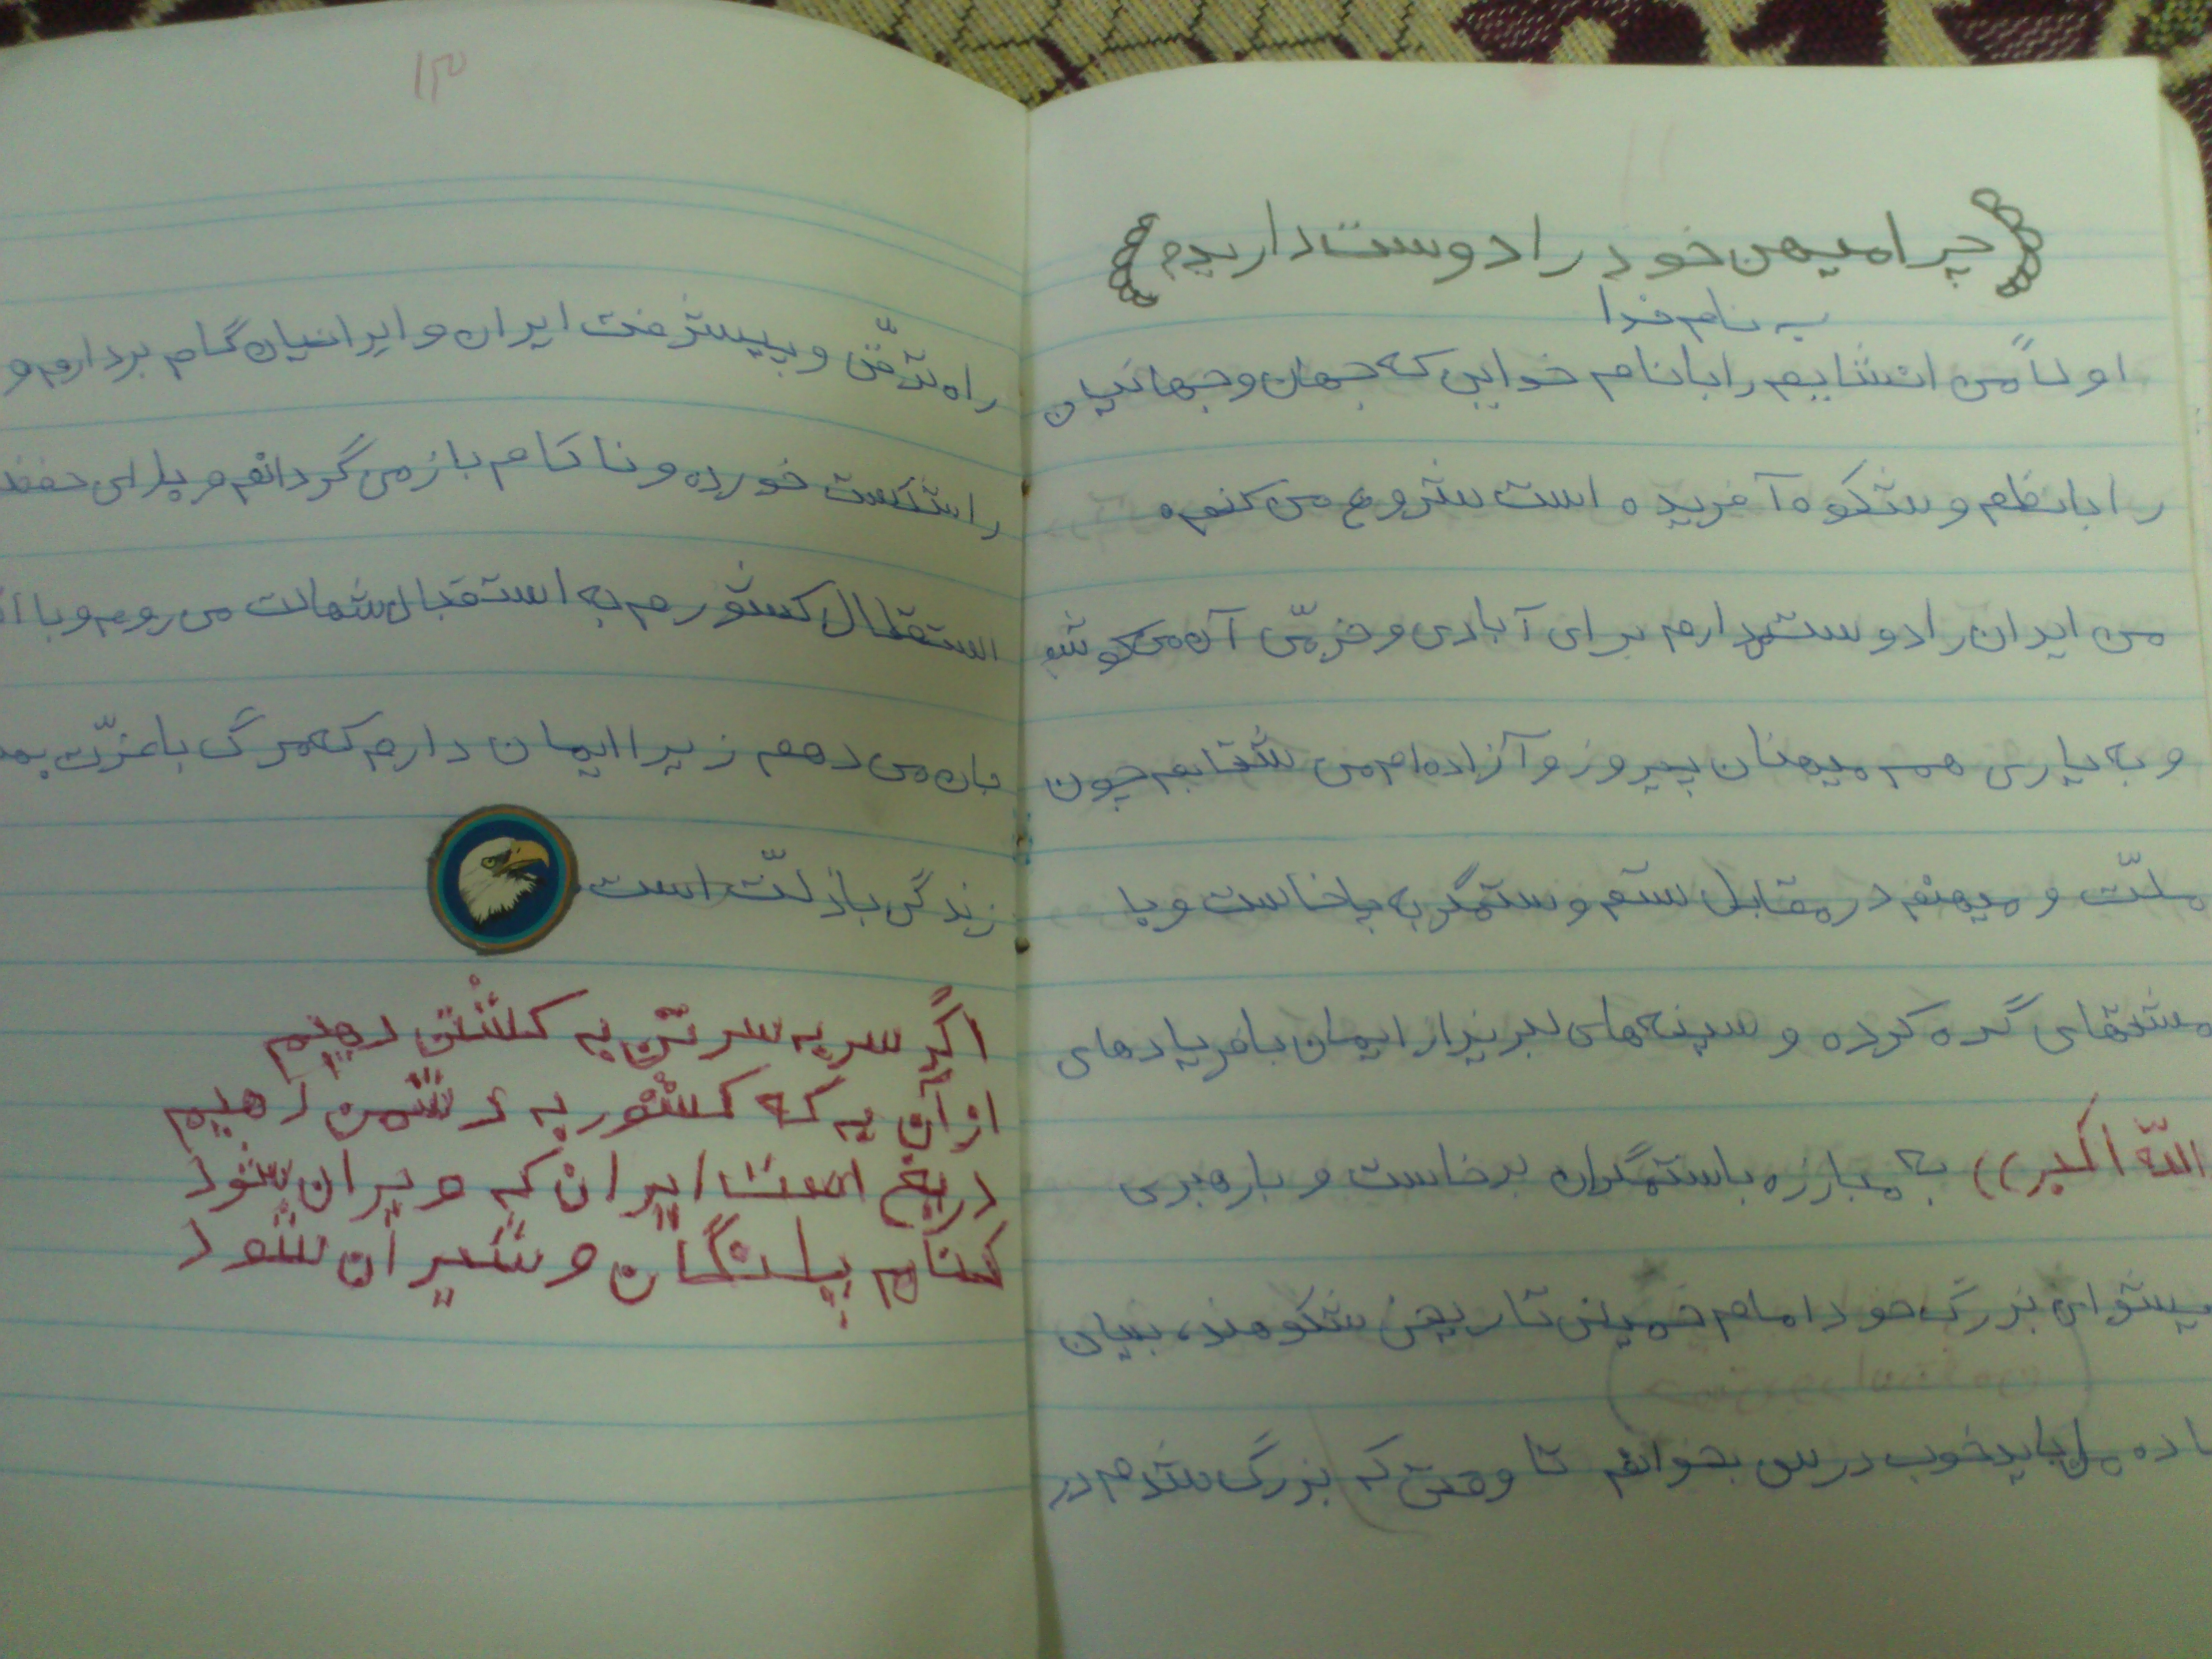 چرا میهن خود را دوست داریم
به نام خدا
اولاً من انشایم را با نام خدایی که جهان و جهانیان
را با نظم و شکوه آفریده است شروع می کنم.
من ایران را دوست دارم برای آبادی و خرمّی آن می کوشم
و به یاری هم میهنان پیروز و آزاده ام می شتابم چون
ملّت و میهنم در مقابل ستم و ستمگر به پا خاست و با
مشتهای گره کرده و سینه های لبریز از ایمان با فریادهای
اللّه اکبر)) به مبارزه با ستمگران برخاست و با رهبری
پیشوای بزرگ خود امام خمینی تاریخی شکومند، بنیان
باید خوب درس بخوانم تا وقتی که بزرگ شدم در
۱۳۰
راه ترّقی و پیشرفت ایران و ایرانیان گام بردارم و
را شکست خورده و ناکام باز می گردانم و برای حفظ
استقلال کشورم به استقبال شهادت می روم و با
جان می دهم زیرا ایمان دارم که مرگ با عزّت به
زندگی با ذلّت است.
اگر سر به سر تن به کشتن دهیم
از آن به که کشور به دشمن دهیم
دریغ است ایران که ویران شود
کنام پلنگان و شیران شود